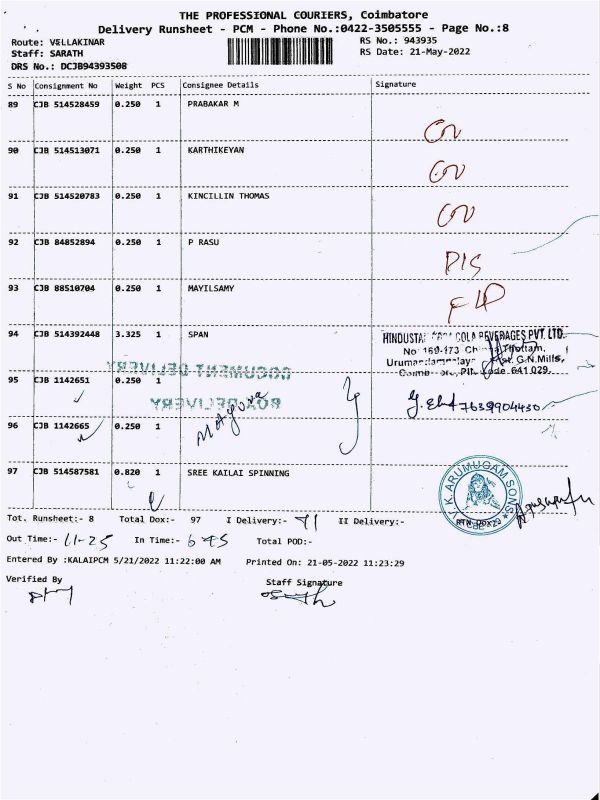 THE PROFESSIONAL COURIERS, Coimbatore
Delivery Runsheet - PCM - Phone No.:0422-3505555 - Page No.:8
Route: VELLAKINAR
RS No.: 943935
Staff: SARATH
RS Date: 21-May-2022
DRS No.: DCJB94393508
S No Consignment No Weight PCS Consignee Details Signature
89 CJB 514528459 0.250 1 PRABAKAR M
90 CJB 514513071 0.250 1 KARTHIKEYAN
91 CJB 514520783 0.250 1 KINCILLIN THOMAS
92 CJB 84852894 0.250 1 P RASU
93 CJB 88510704 0.250 1 MAYILSAMY
94 CJB 514392448 3.325 1 SPAN
HINDUSTAN COCA COLA BEVERAGES PVT. LTD.
No 169-173 Thottam,
G.N.Mills,
Code 641 029.
DOCUMENT DELIVERY
95 CJB 1142651 0.250 1
7639904430
BOX DELIVERY
96 CJB 1142665 0.250 1
97 CJB 514587581 0.820 1 SREE KAILAI SPINNING
V.K. ARUMUGAM SONS
Tot. Runsheet:- 8 Total Dox:- 97 I Delivery:- 71 II Delivery:-
Out Time:- 11-25 In Time:- 6 45 Total POD:-
Entered By :KALAIPCM 5/21/2022 11:22:00 AM Printed On: 21-05-2022 11:23:29
Verified By
Staff Signature